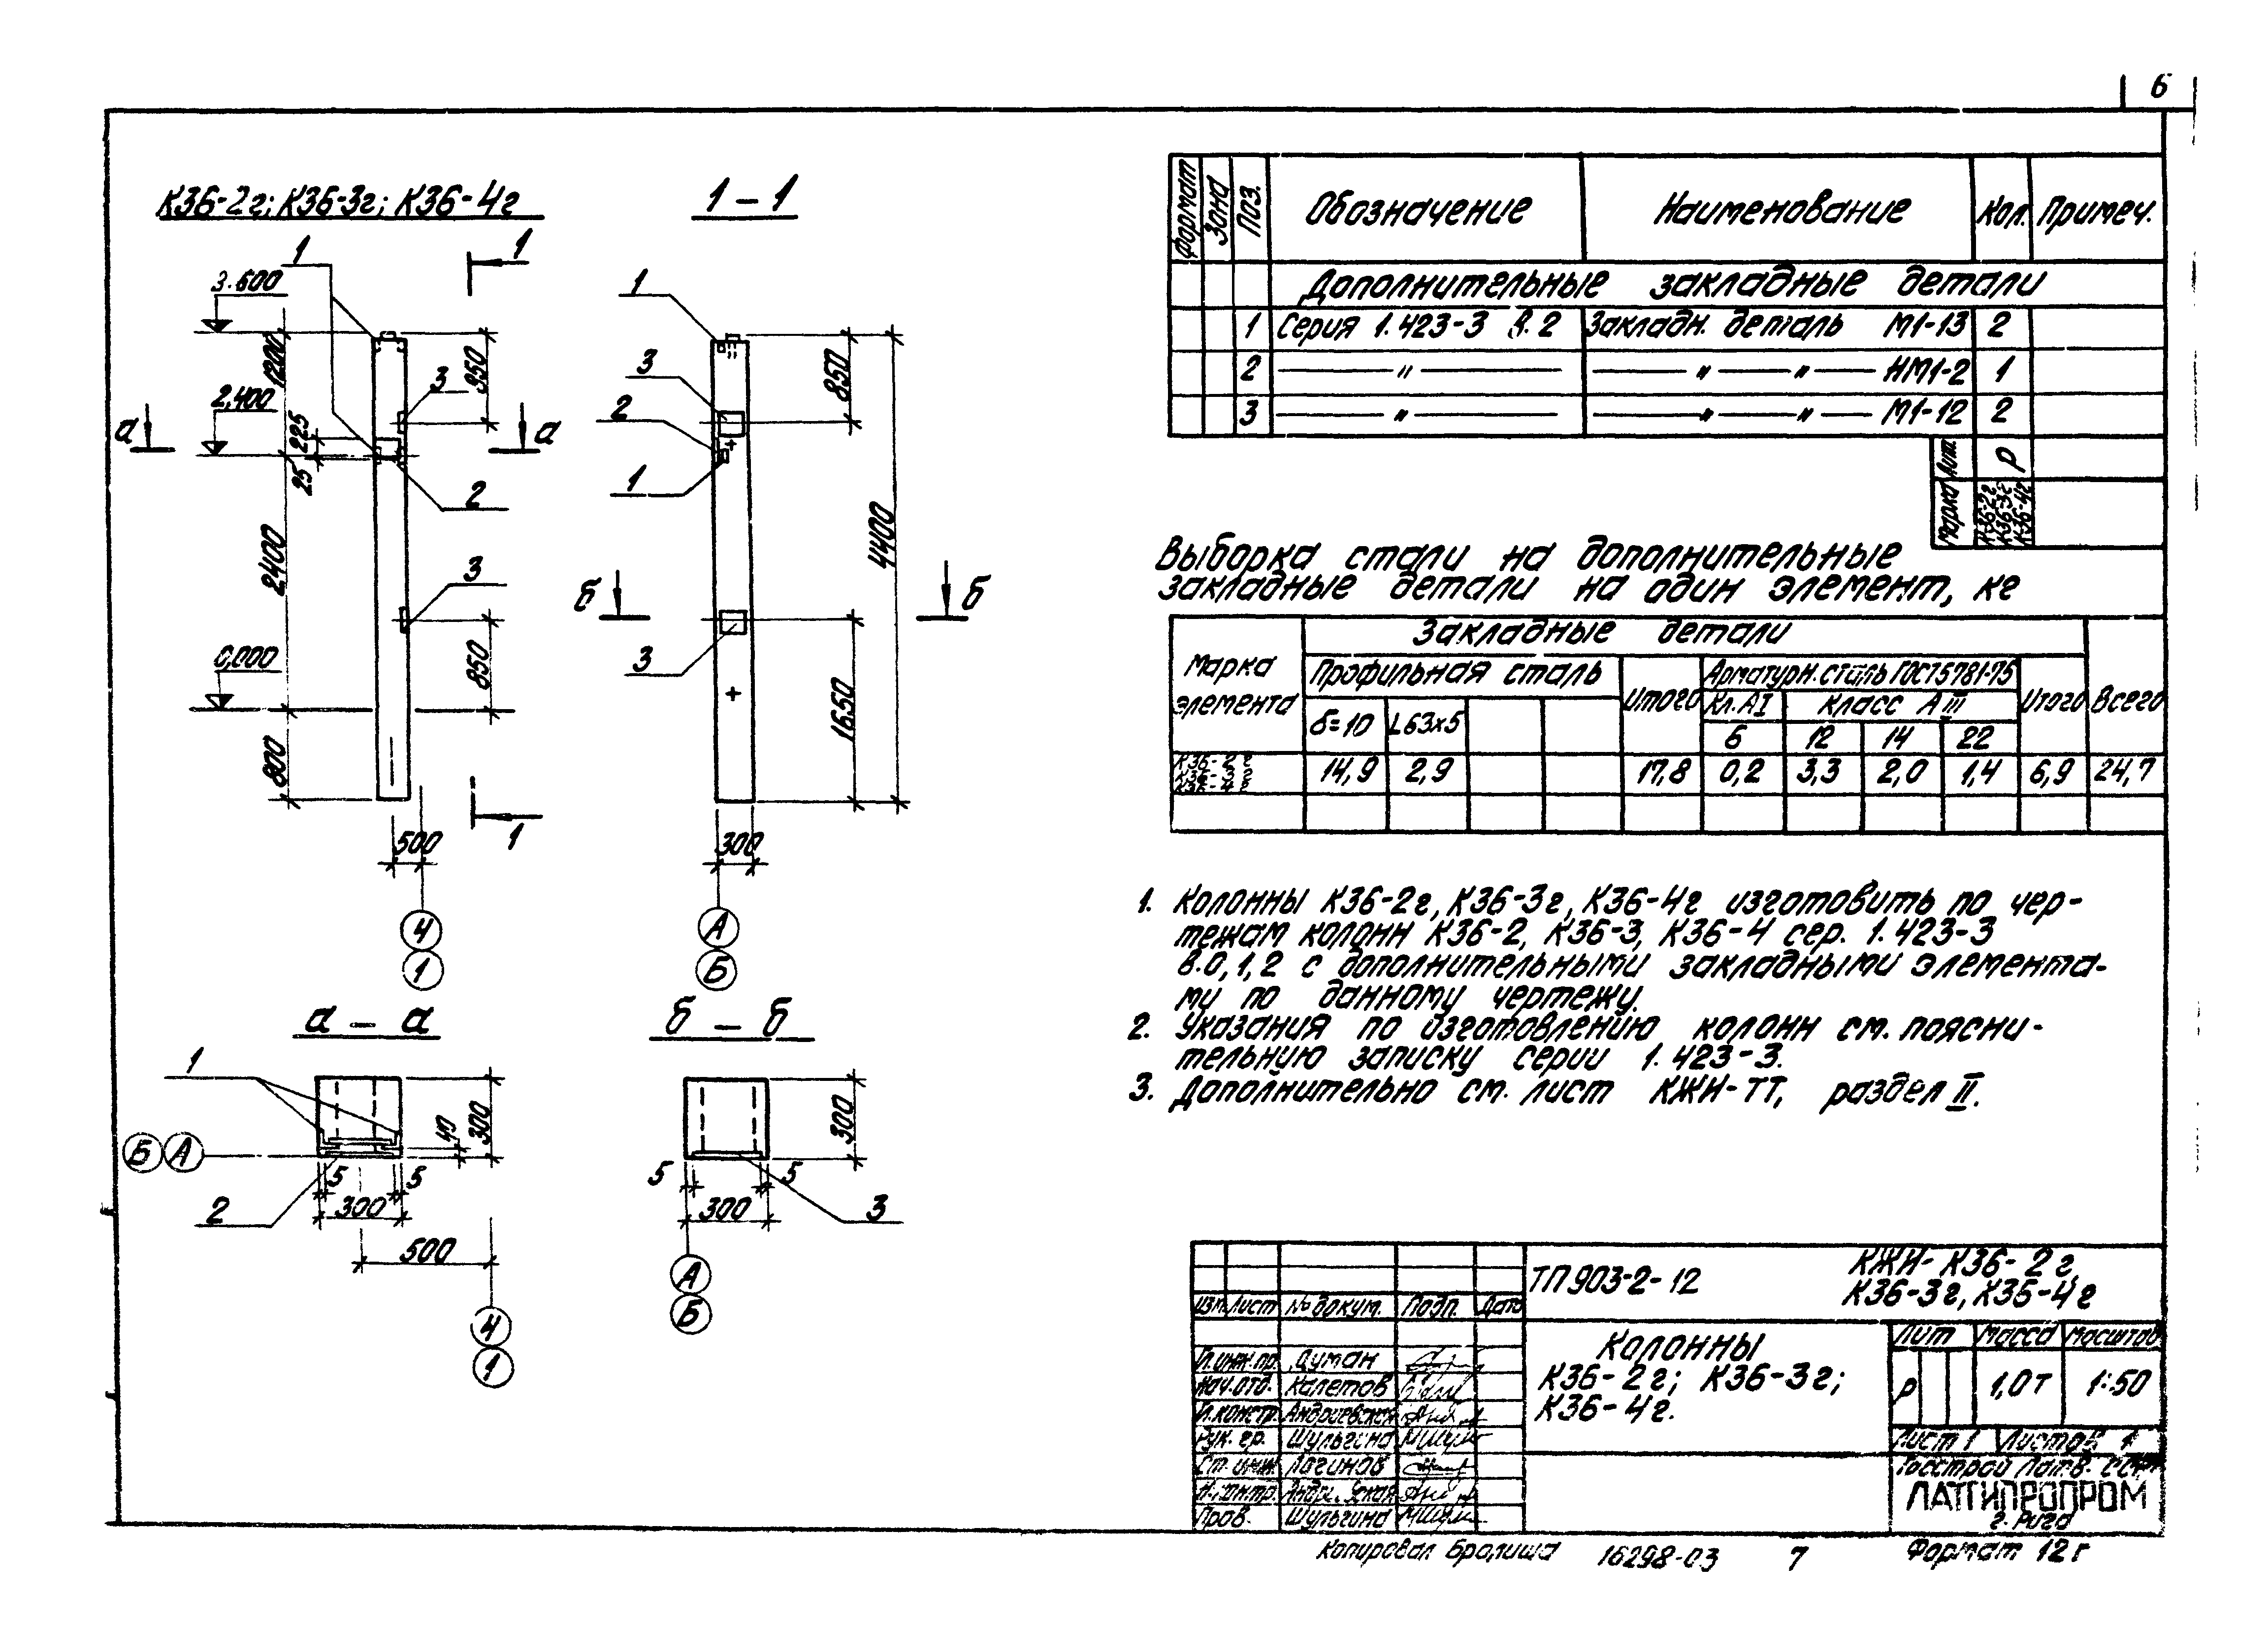 6
К36-2г; К36-3г; К36-4г
1 – 1
1
1
3.600
1200
950
3
2,400
а
а
225
25
2
2400
3
0,000
850
800
1
500
4
1
1
3
2
1
850
4400
б
б
3
1650
300
А
Б
а – а
1
300
40
Б А
5
5
2
300
500
4
1
б – б
300
5
5
300
3
А
Б
Формат Зона Поз. Обозначение Наименование Кол. Примеч.
Дополнительные закладные детали
1 Серия 1.423-3 в.2 Закладн. деталь М1-13 2
2 — " — — " — " — НМ1-2 1
3 — " — — " — " — М1-12 2
Лит. Р
Марка К36-2г К36-3г К36-4г
Выборка стали на дополнительные
закладные детали на один элемент, кг
Марка элемента Закладные детали Всего
Профильная сталь Итого Арматурн. сталь ГОСТ 5781-75 Итого
Кл. АI Класс АIII
δ=10 L63х5 6 12 14 22
К36-2г
К36-3г
К36-4г
14,9 2,9 17,8 0,2 3,3 2,0 1,4 6,9 24,7
1. Колонны К36-2г, К36-3г, К36-4г изготовить по чер-
тежам колонн К36-2, К36-3, К36-4 сер. 1.423-3
в.0,1,2 с дополнительными закладными элемента-
ми по данному чертежу.
2. Указания по изготовлению колонн см. поясни-
тельную записку серии 1.423-3.
3. Дополнительно см. лист КЖИ-ТТ, раздел II.
ТП 903-2-12 КЖИ-К36-2г,
К36-3г, К36-4г
Изм. Лист № докум. Подп. Дата
Колонны
К36-2г; К36-3г;
К36-4г.
Лит Масса Масштаб
Р 1,0т 1:50
Лист 1 Листов 1
Гл. инж. пр. Думан
Нач. отд. Калетов
Гл. констр. Андриевская
Рук. гр. Шульгина
Ст. инж. Логинов
Н. контр.
Пров. Шульгина
Госстрой Латв. ССР
ЛАТГИПРОПРОМ
г. Рига
Копировал 16298-03 7 Формат 12г